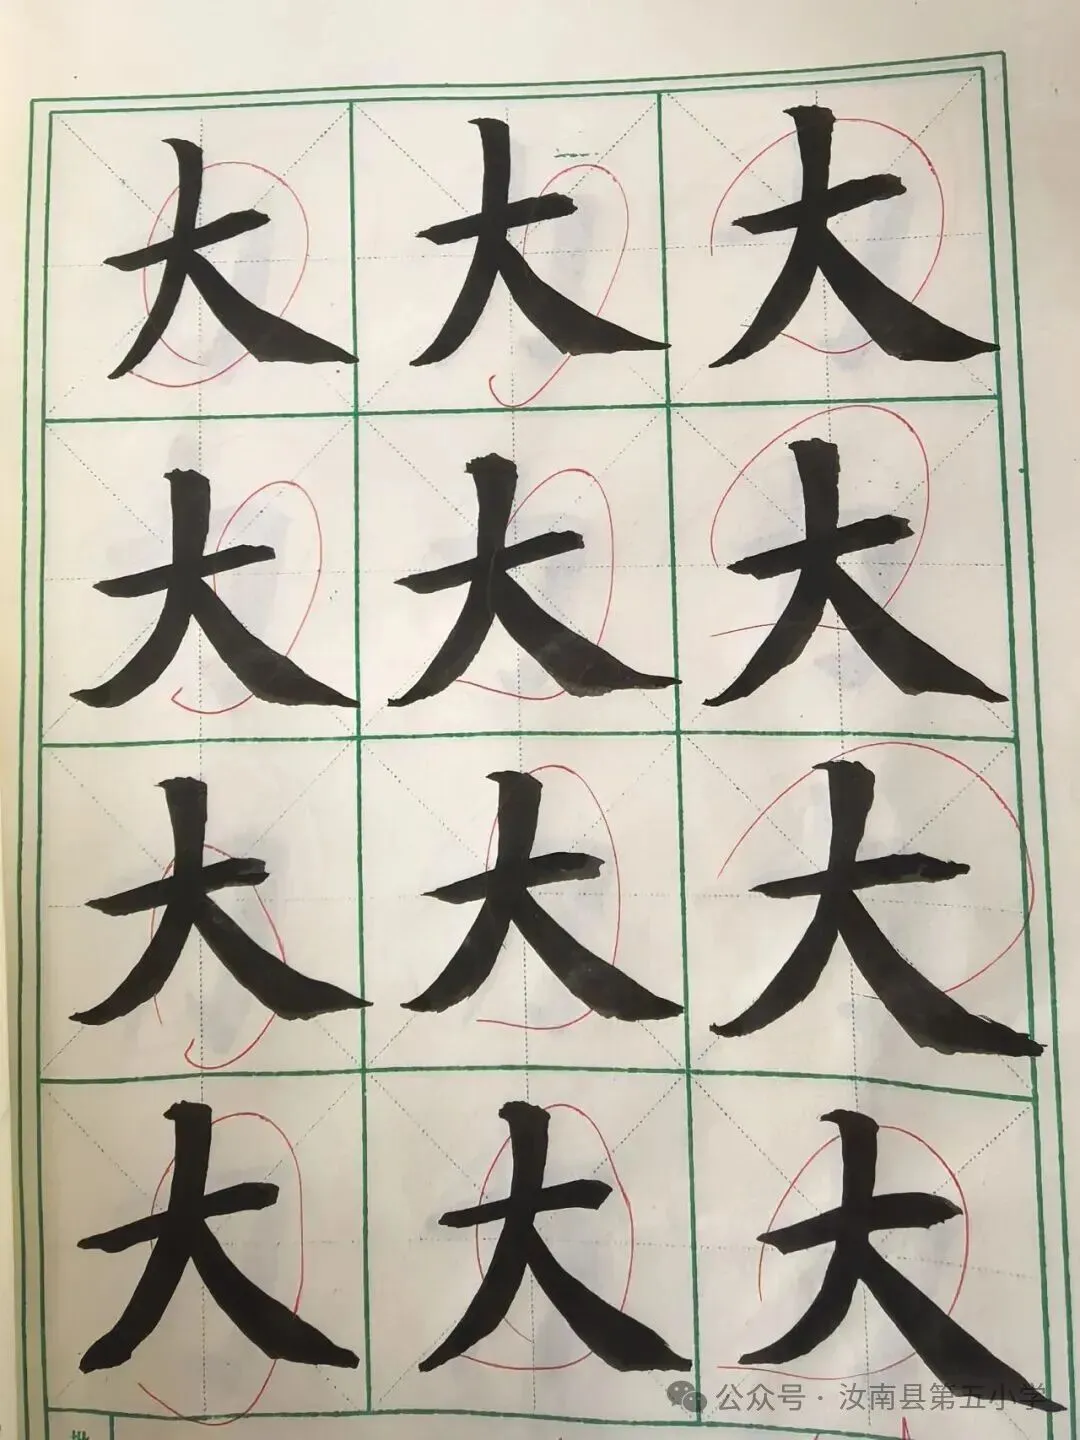 大 大 大
大 大 大
大 大 大
大 大 大
公众号 · 汝南县第五小学